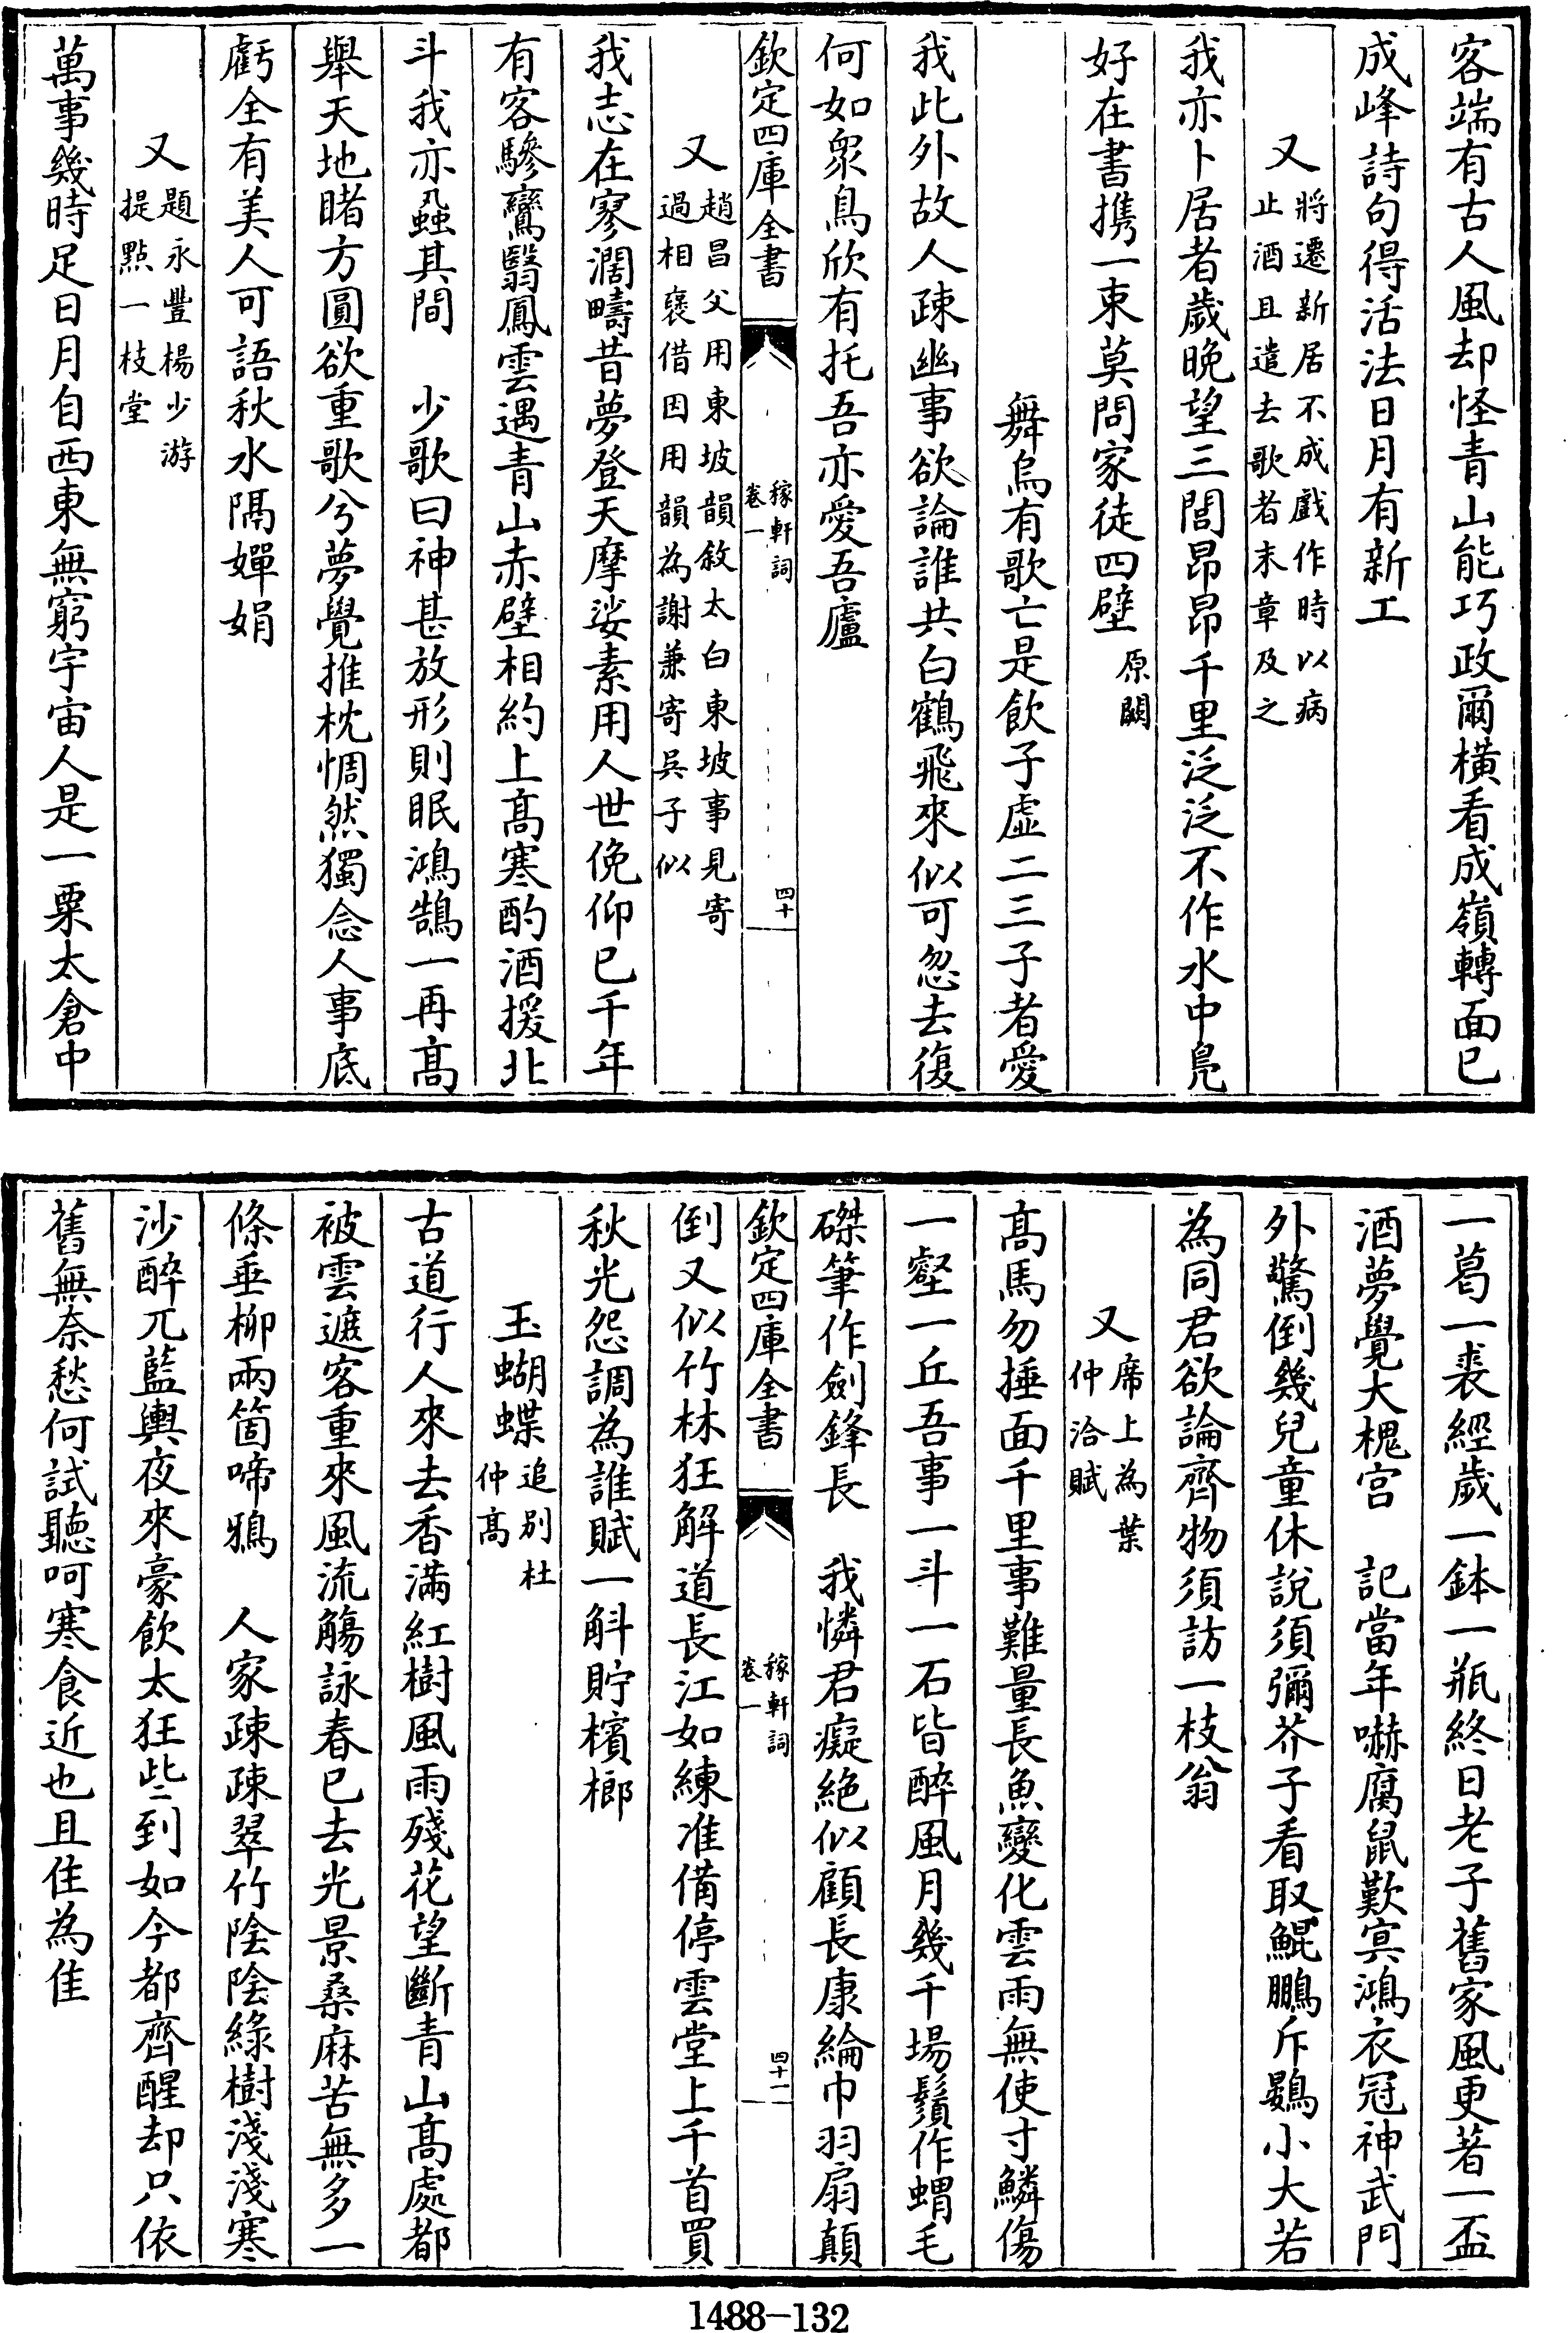 客端有古人風却怪青山能巧政爾橫看成嶺轉面已
成峰詩句得活法日月有新工
又將遷新居不成戲作時以病
止酒且遣去歌者末章及之
我亦卜居者歲晚望三閭昂昂千里泛泛不作水中鳧
好在書携一束莫問家徒四壁原闕
舞烏有歌亡是飲子虛二三子者愛
我此外故人疎幽事欲論誰共白鶴飛來似可忽去復
何如衆鳥欣有托吾亦愛吾廬
欽定四庫全書
稼軒詞
卷一
四十
又趙昌父用東坡韻敘太白東坡事見寄
過相褒借因用韻為謝兼寄吳子似
我志在寥濶疇昔夢登天摩娑素用人世俛仰已千年
有客驂鸞翳鳳雲遇青山赤壁相約上髙寒酌酒援北
斗我亦蝨其間　少歌曰神甚放形則眠鴻鵠一再髙
舉天地睹方圓欲重歌兮夢覺推枕惆然獨念人事底
虧全有美人可語秋水隔嬋娟
又題永豐楊少游
提點一枝堂
萬事幾時足日月自西東無窮宇宙人是一粟太倉中
一葛一裘經歲一鉢一瓶終日老子舊家風更著一盃
酒夢覺大槐宮　記當年嚇腐鼠歎㝠鴻衣冠神武門
外驚倒幾兒童休說須彌芥子看取鯤鵬斥鷃小大若
為同君欲論齊物須訪一枝翁
又席上為葉
仲洽賦
髙馬勿捶面千里事難量長魚變化雲雨無使寸鱗傷
一壑一丘吾事一斗一石皆醉風月幾千場鬚作蝟毛
磔筆作劍鋒長　我憐君癡絶似顧長康綸巾羽扇顛
欽定四庫全書
稼軒詞
卷一
四十一
倒又似竹林狂解道長江如練准備停雲堂上千首買
秋光怨調為誰賦一斛貯檳榔
玉蝴蝶追别杜
仲髙
古道行人來去香滿紅樹風雨殘花望斷青山髙處都
被雲遮客重來風流觴詠春已去光景桑麻苦無多一
條垂柳兩箇啼鴉　人家疎疎翠竹陰陰綠樹淺淺寒
沙醉兀藍輿夜來豪飲太狂些到如今都齊醒却只依
舊無奈愁何試聽呵寒食近也且住為佳
1488-132